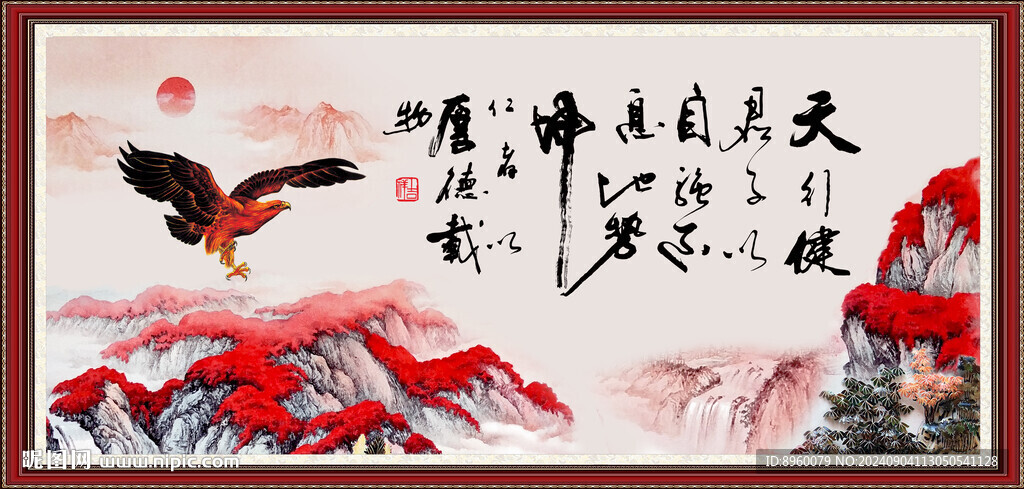 天行健
君子以
自强不
息地势
坤
仁者以
厚德载
物
昵图网 www.nipic.com
ID:8960079 NO:20240904113050541128